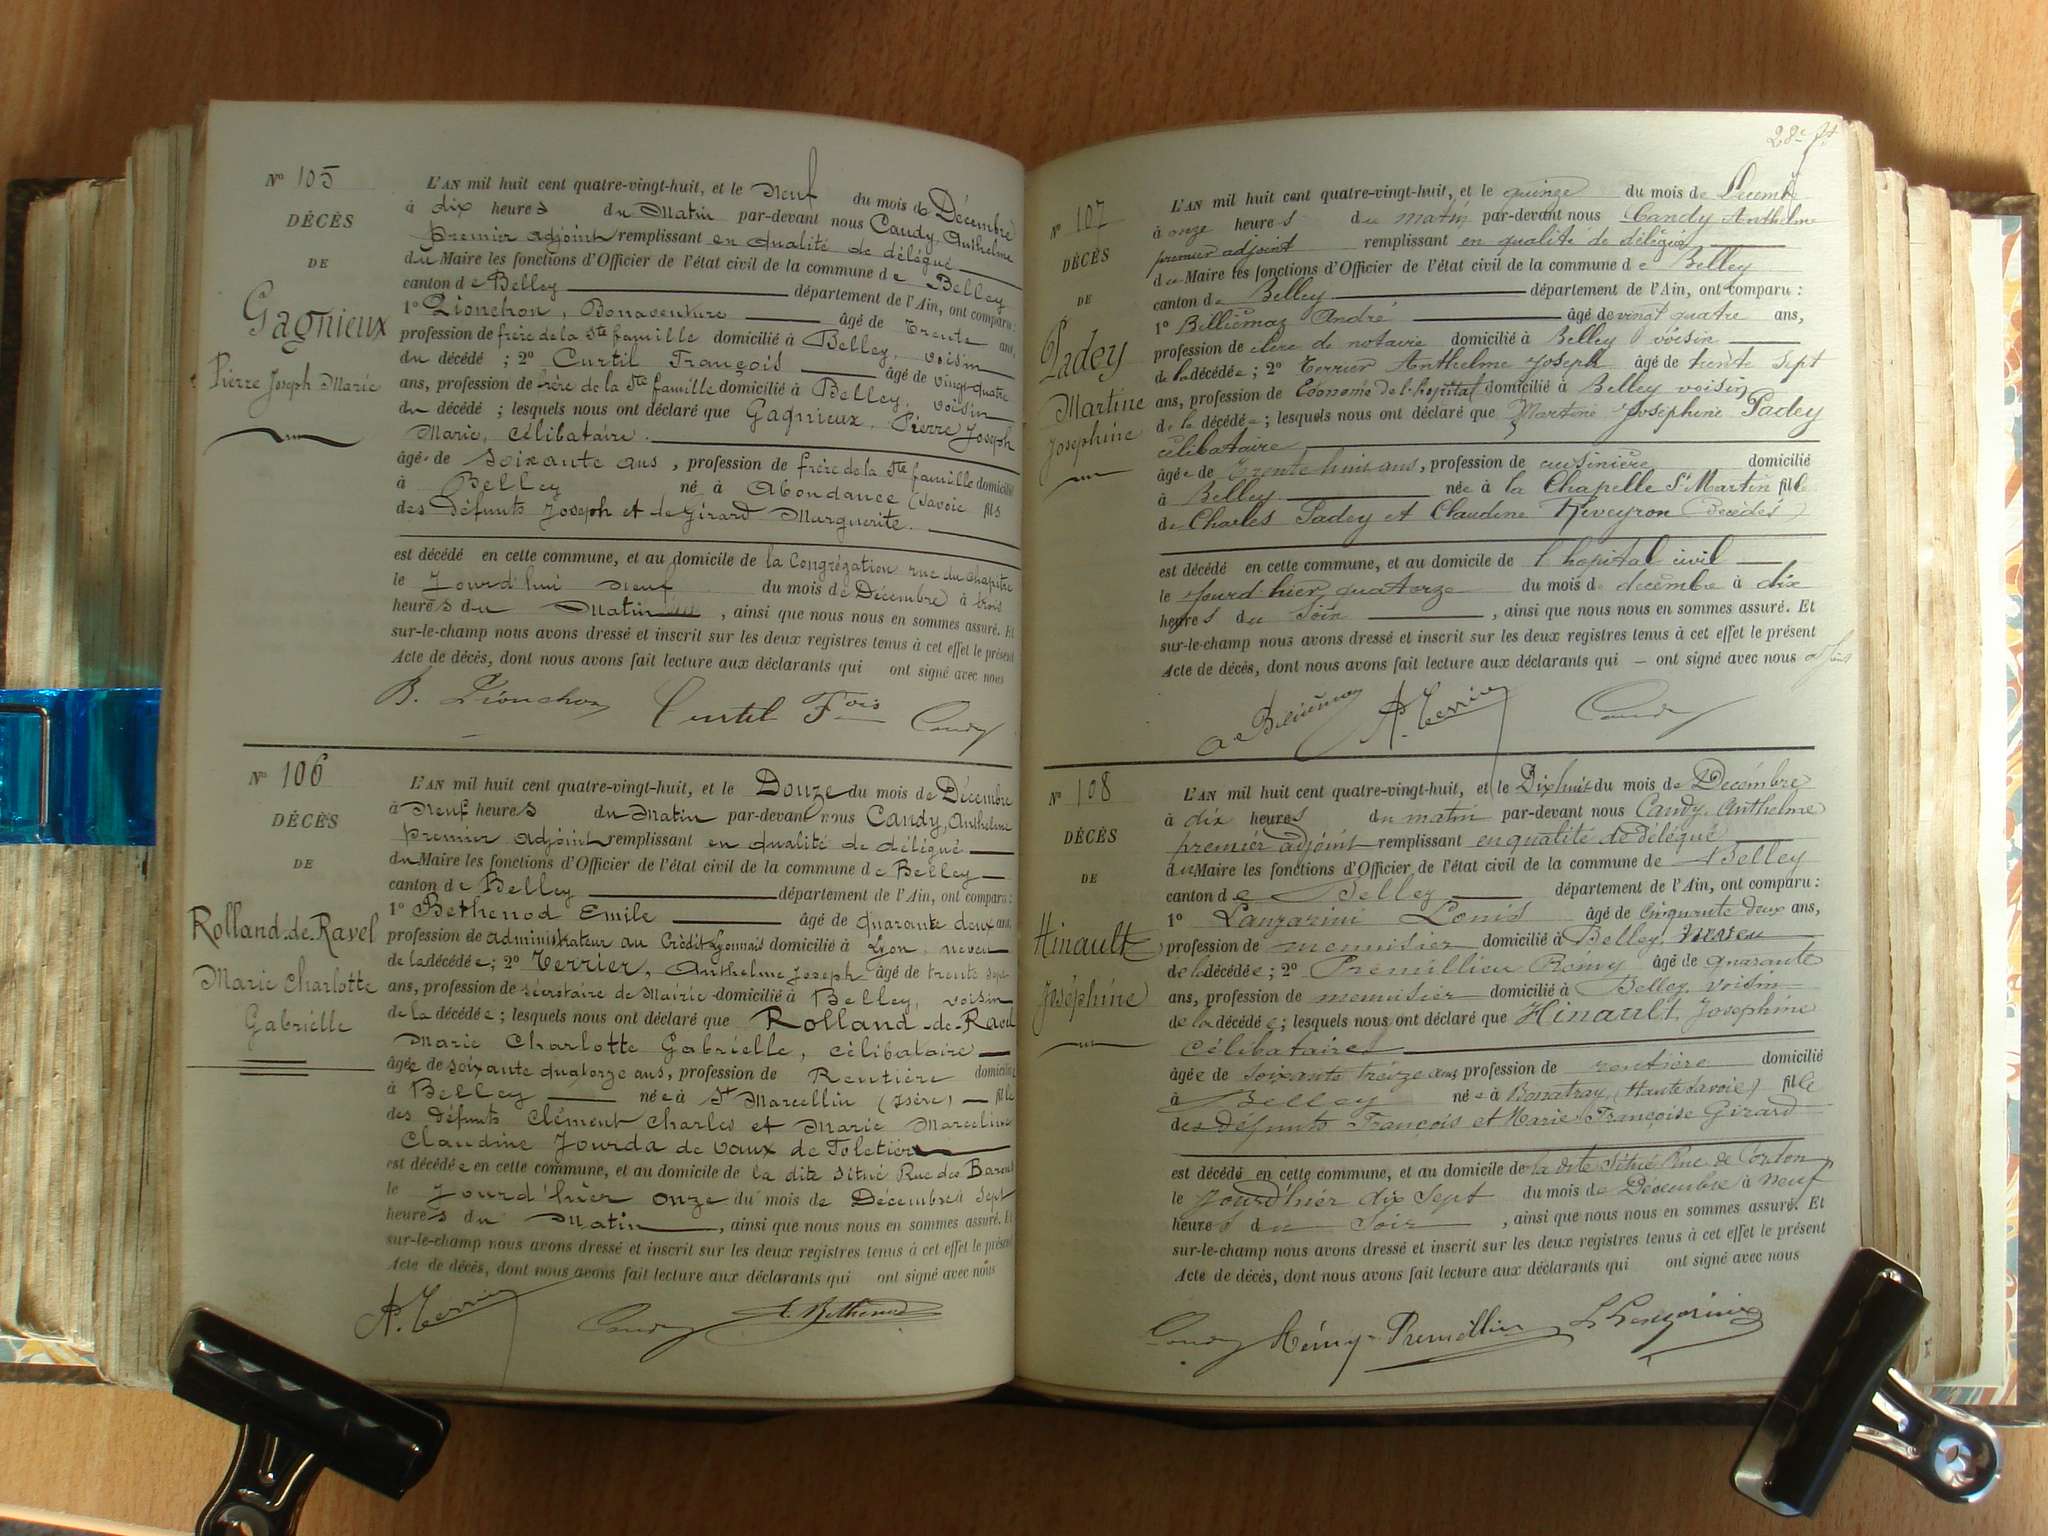 N° 105
DÉCÈS
DE
Gagnieux
Pierre Joseph Marie
L'AN mil huit cent quatre-vingt-huit, et le Neuf du mois de Décembre
à dix heures du Matin par-devant nous Candy, Anthelme
premier adjoint remplissant en qualité de délégué
du Maire les fonctions d'Officier de l'état civil de la commune de Belley
canton de Belley département de l'Ain, ont comparu :
1° Lionchon, Bonaventure âgé de trente ans,
profession de frère de la Ste famille domicilié à Belley, voisin
du décédé ; 2° Curtil François âgé de vingt-quatre
ans, profession de frère de la Ste famille domicilié à Belley, voisin
du décédé ; lesquels nous ont déclaré que Gagnieux, Pierre Joseph
Marie, célibataire.
âgé de soixante ans, profession de frère de la Ste famille domicilié
à Belley né à Abondance (Savoie fils
des défunts Joseph et de Girard Marguerite.
est décédé en cette commune, et au domicile de la Congrégation rue du Chapitre
le Jourd'hui neuf du mois de Décembre à trois
heures du Matin, ainsi que nous nous en sommes assuré. Et
sur-le-champ nous avons dressé et inscrit sur les deux registres tenus à cet effet le présent
Acte de décès, dont nous avons fait lecture aux déclarants qui ont signé avec nous
B. Lionchon Curtil Fois Candy
N° 106
DÉCÈS
DE
Rolland-de-Ravel
Marie Charlotte
Gabrielle
L'AN mil huit cent quatre-vingt-huit, et le Douze du mois de Décembre
à Neuf heures du Matin par-devant nous Candy, Anthelme
premier adjoint remplissant en qualité de délégué
du Maire les fonctions d'Officier de l'état civil de la commune de Belley
canton de Belley département de l'Ain, ont comparu :
1° Bethenod Emile âgé de quarante deux ans,
profession de administrateur au Crédit Lyonnais domicilié à Lyon, neveu
de la décédée ; 2° Terrier, Anthelme Joseph âgé de trente sept
ans, profession de sécretaire de Mairie domicilié à Belley, voisin
de la décédée ; lesquels nous ont déclaré que Rolland-de-Ravel
Marie Charlotte Gabrielle, célibataire
âgée de soixante quatorze ans, profession de Rentière domicilié
à Belley née à St Marcellin (Isère) fille
des défunts Clément Charles et Marie Marceline
Claudine Jourda de Vaux de Foletier
est décédée en cette commune, et au domicile de la dite situé Rue des Barons
le Jourd'hier onze du mois de Décembre à sept
heures du Matin, ainsi que nous nous en sommes assuré. Et
sur-le-champ nous avons dressé et inscrit sur les deux registres tenus à cet effet le présent
Acte de décès, dont nous avons fait lecture aux déclarants qui ont signé avec nous
A. Terrier Candy E. Bethenod
28e
N° 107
DÉCÈS
DE
Padey
Martine
Josephine
L'AN mil huit cent quatre-vingt-huit, et le quinze du mois de Décembre
à onze heures du matin par-devant nous Candy Anthelme
premier adjoint remplissant en qualité de délégué
du Maire les fonctions d'Officier de l'état civil de la commune de Belley
canton de Belley département de l'Ain, ont comparu :
1° Belliemaz André âgé de vingt quatre ans,
profession de clerc de notaire domicilié à Belley voisin
de la décédée ; 2° Terrier Anthelme Joseph âgé de trente sept
ans, profession de Econome de l'hopital domicilié à Belley voisin
de la décédée ; lesquels nous ont déclaré que Martine Joséphine Padey
célibataire
âgée de Trente huit ans, profession de cuisinière domicilié
à Belley née à la Chapelle St Martin fille
de Charles Padey et Claudine Reveyron (décédés)
est décédé en cette commune, et au domicile de l'hopital civil
le jourd'hier quatorze du mois de décembre à dix
heures du Soir, ainsi que nous nous en sommes assuré. Et
sur-le-champ nous avons dressé et inscrit sur les deux registres tenus à cet effet le présent
Acte de décès, dont nous avons fait lecture aux déclarants qui – ont signé avec nous
A Belliemaz A. Terrier Candy
N° 108
DÉCÈS
DE
Hinault
Joséphine
L'AN mil huit cent quatre-vingt-huit, et le Dix huit du mois de Décembre
à dix heures du matin par-devant nous Candy, Anthelme
premier adjoint remplissant en qualité de délégué
du Maire les fonctions d'Officier de l'état civil de la commune de Belley
canton de Belley département de l'Ain, ont comparu :
1° Lanzarini Louis âgé de cinquante deux ans,
profession de menuisier domicilié à Belley, neveu
de la décédée ; 2° Premillieu Rémy âgé de quarante
ans, profession de menuisier domicilié à Belley, voisin
de la décédée ; lesquels nous ont déclaré que Hinault Josephine
célibataire
âgée de soixante treize ans profession de rentière domicilié
à Belley née à Bonatray, (Haute Savoie) fille
des défunts François et Marie Françoise Girard
est décédé en cette commune, et au domicile de la dite situé Rue de Cordon
le jourd'hier dix sept du mois de Décembre à neuf
heures du Soir, ainsi que nous nous en sommes assuré. Et
sur-le-champ nous avons dressé et inscrit sur les deux registres tenus à cet effet le présent
Acte de décès, dont nous avons fait lecture aux déclarants qui ont signé avec nous
Candy Rémy Premillieu L Lanzarini